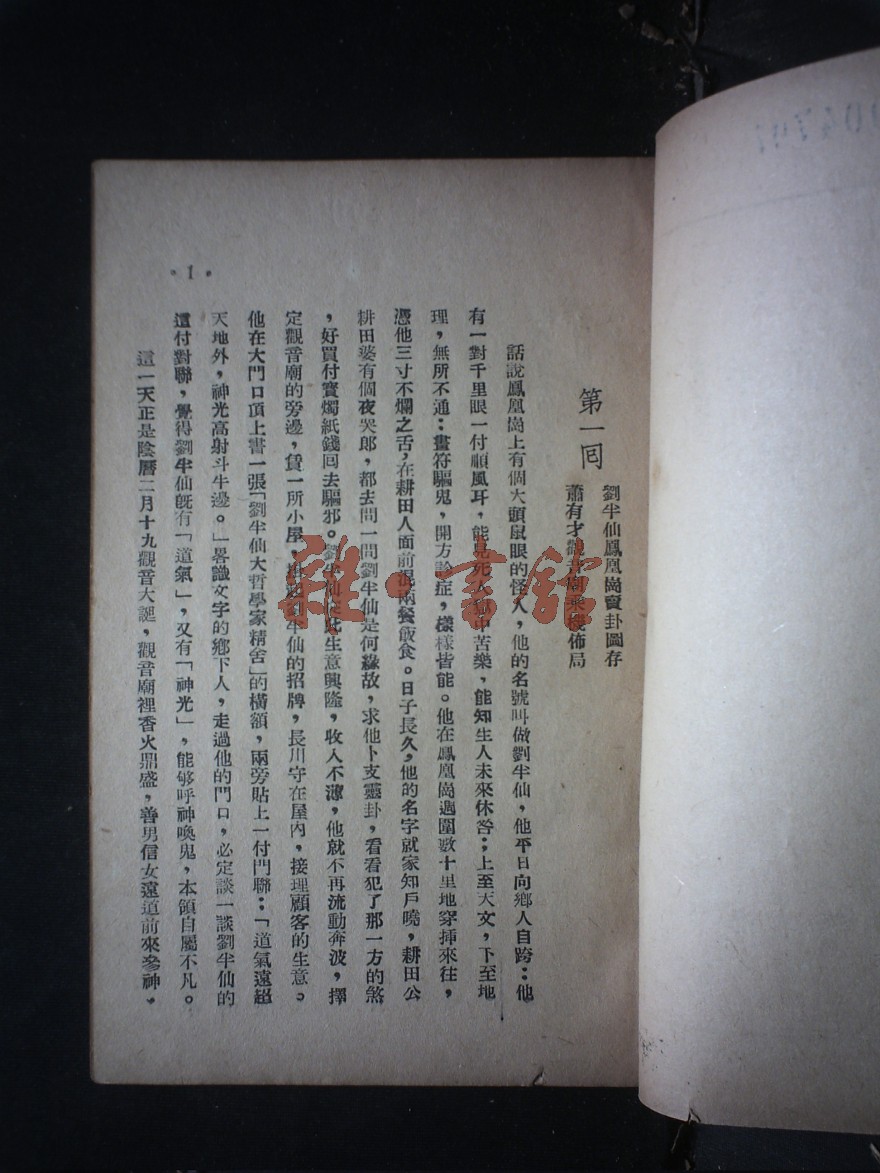 第一囘
劉半仙鳳凰崗賣卦圖存
蕭有才觀音廟乘機佈局
話說鳳凰崗上有個大頭鼠眼的怪人，他的名號叫做劉半仙，他平日向鄉人自誇：他
有一對千里眼一付順風耳，能見死人獄中苦樂，能知生人未來休咎；上至天文，下至地
理，無所不通：畫符驅鬼，開方論症，樣樣皆能。他在鳳凰崗週圍數十里地穿挿來往，
憑他三寸不爛之舌，在耕田人面前混兩餐飯食。日子長久，他的名字就家知戶曉，耕田公
耕田婆有個夜哭郎，都去問一問劉半仙是何緣故，求他卜支靈卦，看看犯了那一方的煞
，好買付寶燭紙錢囘去驅邪。劉半仙從此生意興隆，收入不薄，他就不再流動奔波，擇
定觀音廟的旁邊，賃一所小屋，掛起劉半仙的招牌，長川守在屋內，接理顧客的生意。
他在大門口頂上書一張「劉半仙大哲學家精舍」的橫額，兩旁貼上一付門聯：「道氣遠超
天地外，神光高射斗牛邊。」畧識文字的鄉下人，走過他的門口，必定談一談劉半仙的
這付對聯，覺得劉半仙旣有「道氣」，又有「神光」，能够呼神喚鬼，本領自屬不凡。
這一天正是陰曆二月十九觀音大誕，觀音廟裡香火鼎盛，善男信女遠道前來參神，
·1·
雜·書館